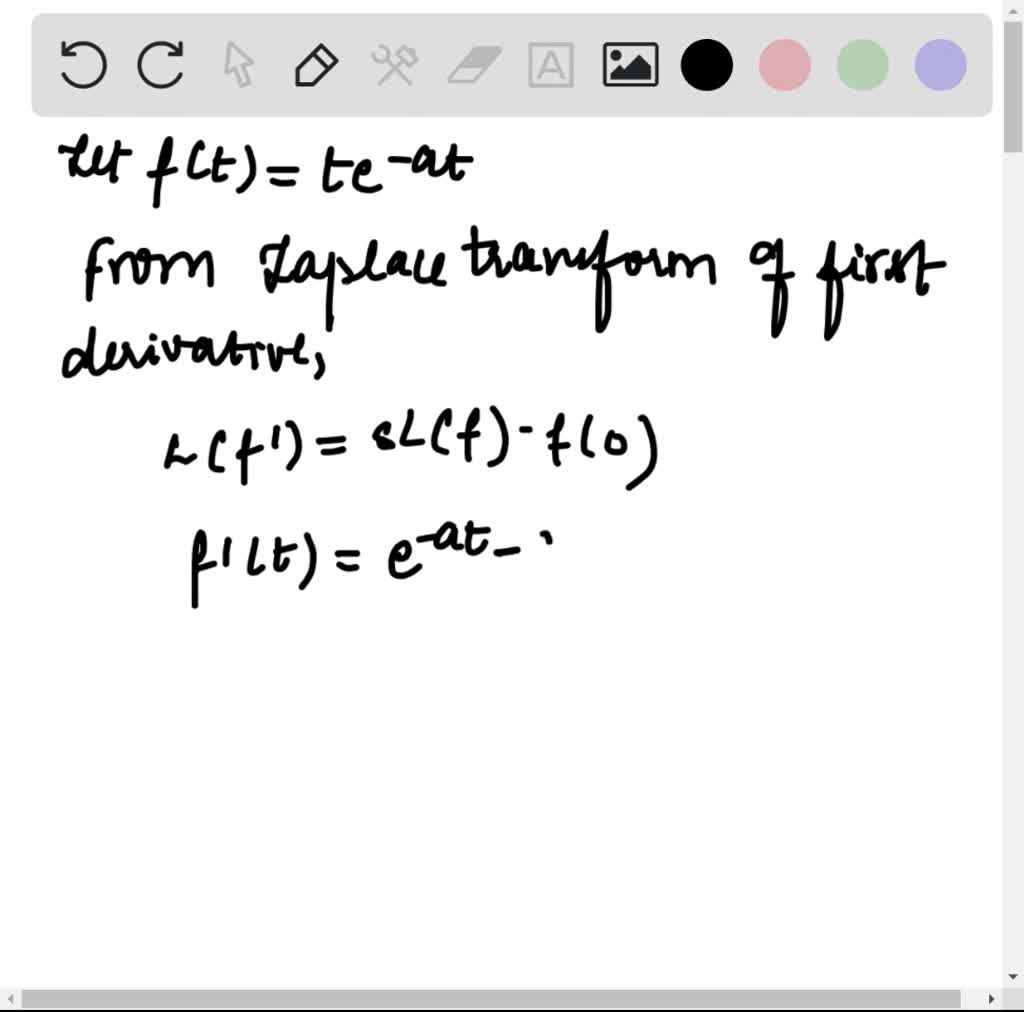 Let f(t) = te^-at
from Laplace transform of first
derivative,
L(f') = sL(f) - f(0)
f'(t) = e^-at -
A